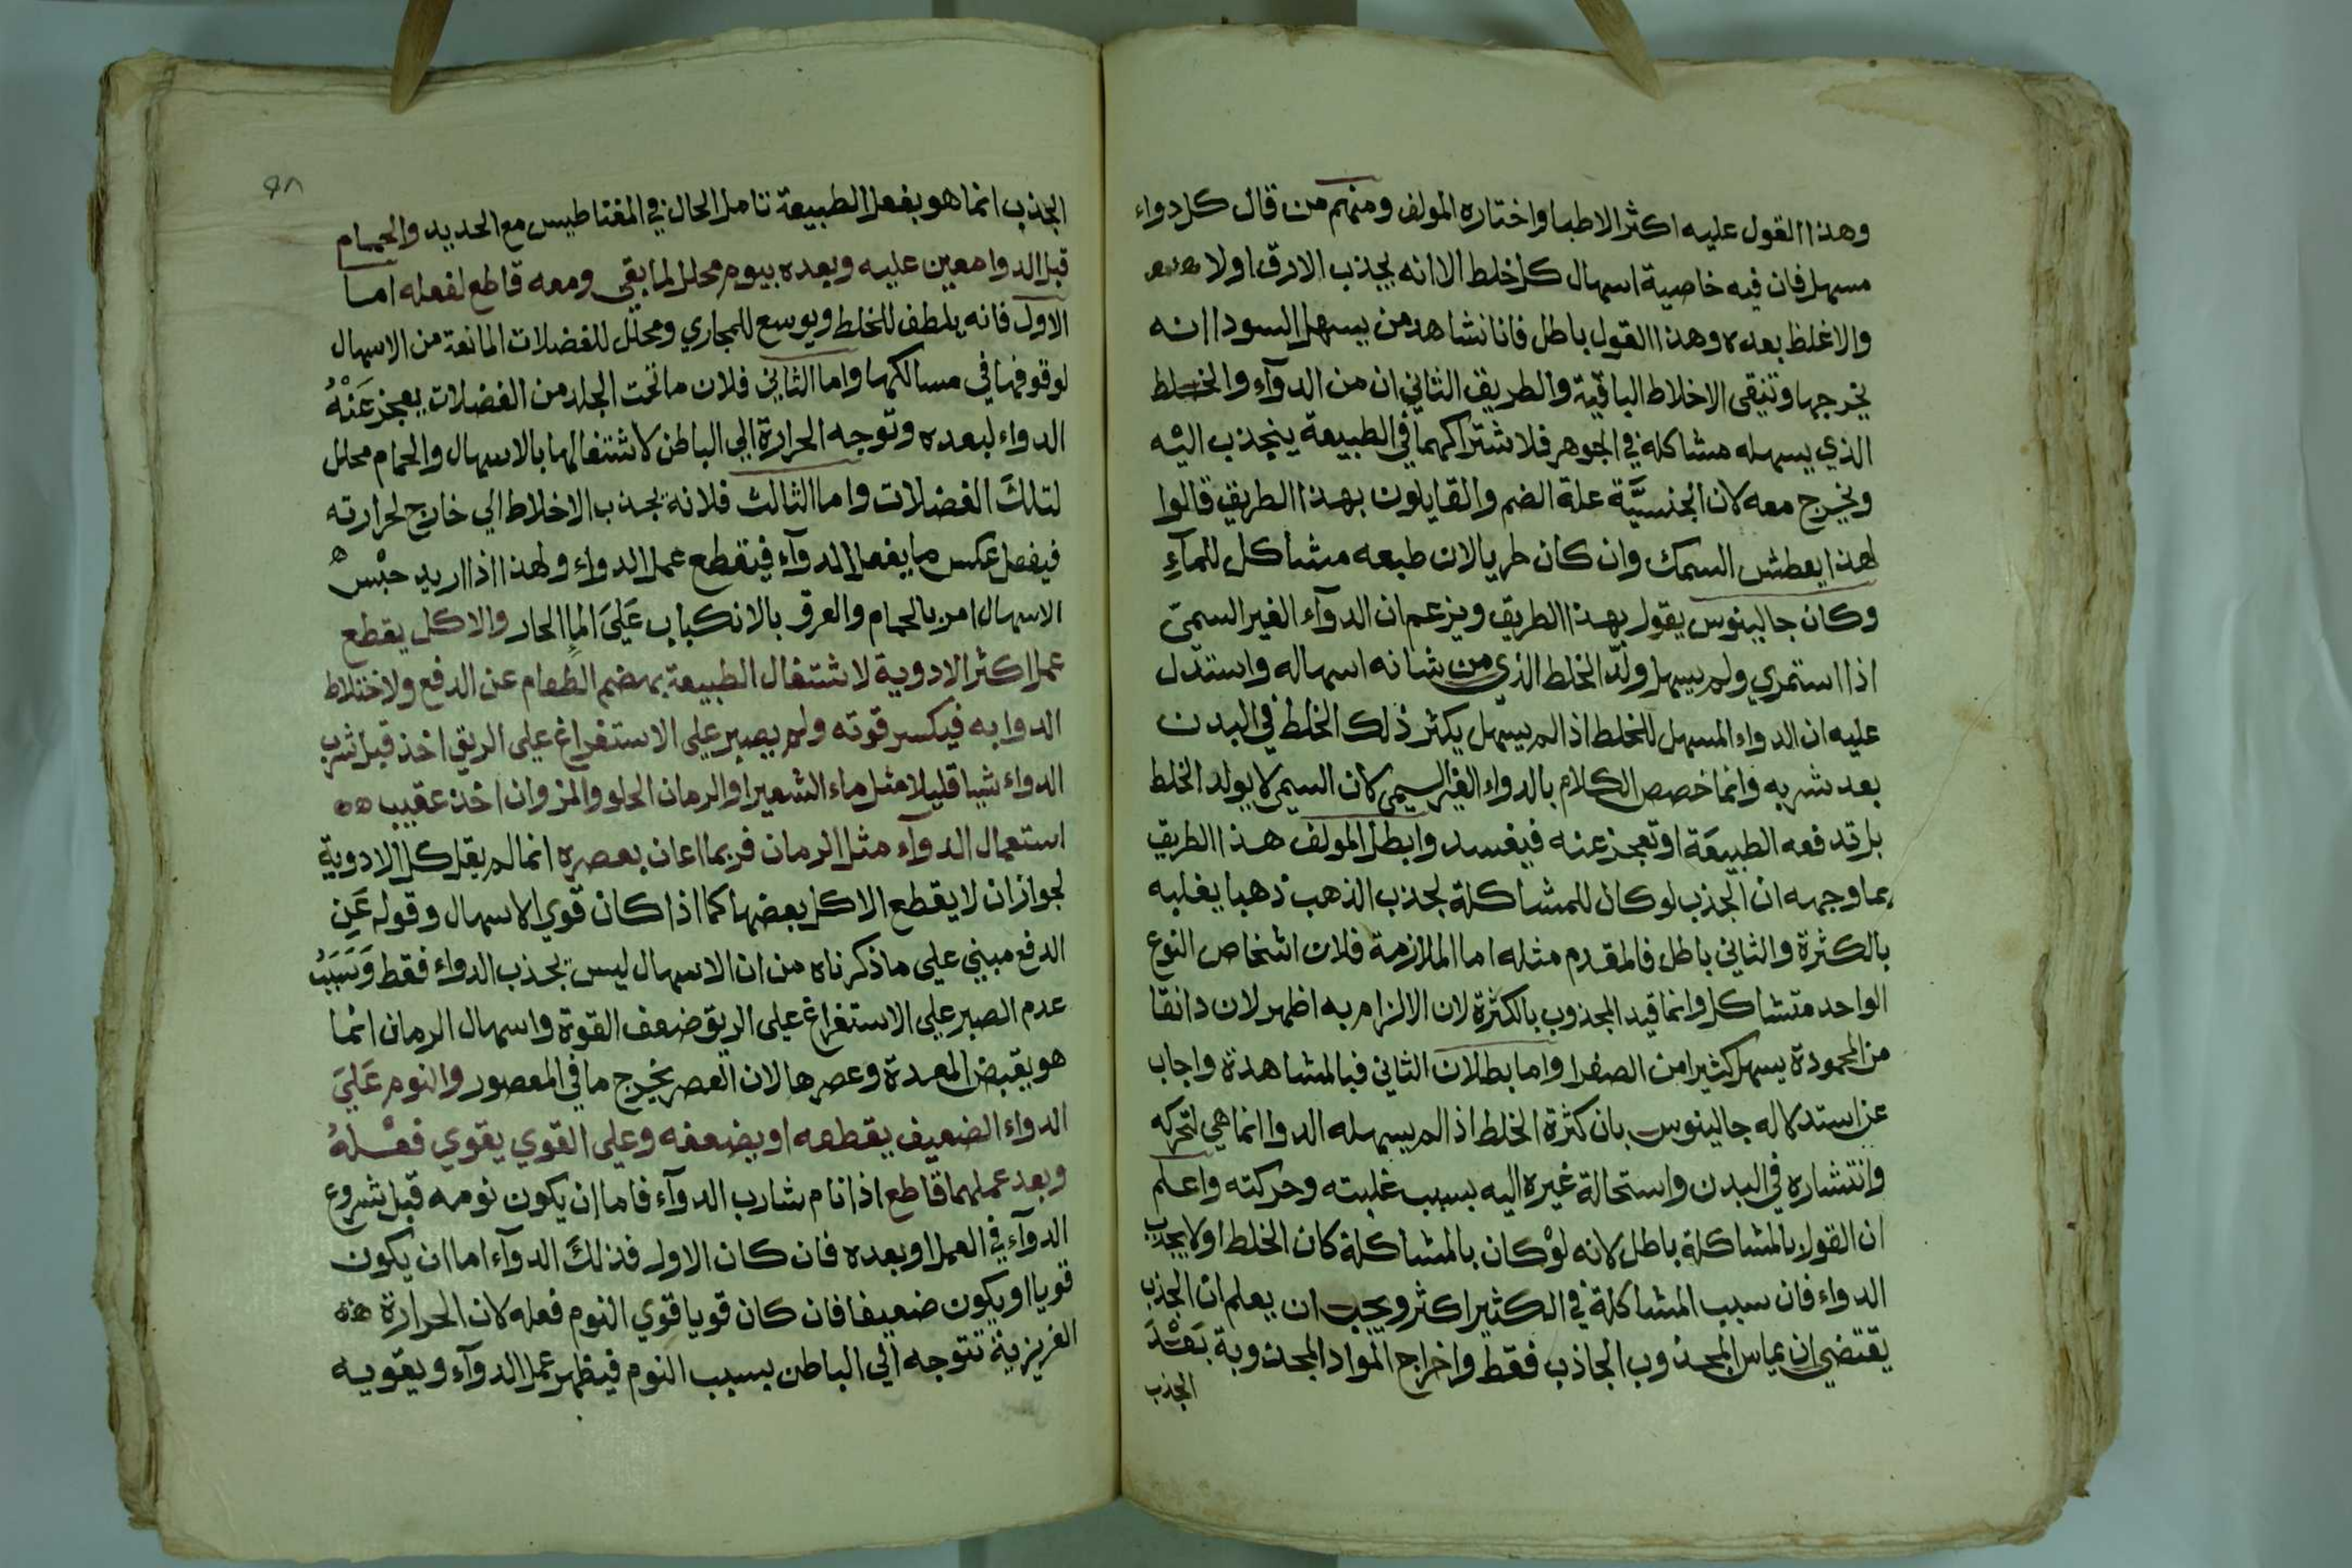 وهذا القول عليه اكثر الاطبا واختاره المولف ومنهم من قال كل دواء
مسهل فان فيه خاصية اسهال كل خلط الا انه يجذب الارق اولا
والاغلظ بعده وهذا القول باطل فانا نشاهد من يسهل السودا انه
يخرجها وتنقى الاخلاط الباقية والطريق الثاني ان من الدوآء والخلط
الذي يسهله مشاكلة في الجوهر فلاشتراكهما في الطبيعة ينجذب اليه
ويخرج معه لان الجنسيَّة علة الضم والقايلون بهذا الطريق قالوا
لهذا يعطش السمك وان كان طريا لان طبعه مشاكل للمآءِ
وكان جالينوس يقول بهذا الطريق ويزعم ان الدوآء الغير السميّ
اذا استمري ولم يسهل ولّد الخلط الذي من شانه اسهاله واستدل
عليه ان الدواء المسهل للخلط اذا لم يسهل يكثر ذلك الخلط في البدن
بعد شربه وانما خصص الكلام بالدواء الغير السمي لان السمي لا يولد الخلط
بل قد فعه الطبيعَة او تعجز عنه فيفسد وابطل المولف هذا الطريق
بما وجهه ان الجذب لو كان للمشاكلة لجذب الذهب ذهبا يغلبه
بالكثرة والثاني باطل فالمقدم مثله اما الملازمة فلان اشخاص النوع
الواحد متشاكل وانما قيد المجذوب بالكثرة لان الالزام به اظهر لان دانقا
من المحمودة يسهل كثيرا من الصفرا واما بطلان الثاني فبالمشاهدة واجاب
عن استدلاله جالينوس بان كثرة الخلط اذا لم يسهله الدوا انما هي لتحركه
وانتشاره في البدن واستحالة غيره اليه بسبب غلبته وحركته واعلم
ان القول بالمشاكلة باطل لانه لوْ كان بالمشاكلة كان الخلط اولا يجذب
الدواء فان سبب المشاكلة في الكثير اكثر ويجب ان يعلم ان الجذب
يقتضي ان يماس المجذوب الجاذب فقط واخراج المواد المجذوبة بَعْدَ
الجذب
٩٨
الجذب انما هو بفعل الطبيعة تامل الحال في المغناطيس مع الحديد والحمام
قبل الدوا معين عليه وبعده بيوم محلل لما بقي ومعه قاطع لفعله اما
الاول فانه يلطف للخلط ويوسع للمجاري ومحلل للفضلات المانعة من الاسهال
لوقوفها في مسالكها واما الثاني فلان ما تحت الجلد من الفضلات يعجز عَنْهُ
الدواء لبعده وتوجه الحرارة الي الباطن لاشتغالها بالاسهال والحمام محلل
لتلكَ الفضلات واما الثالث فلانه يجذب الاخلاط الي خارج لحرارته
فيفعل عكس ما يفعل الدوآء فيقطع عمل الدواء ولهذا اذا اريد حبْس
الاسهال امر بالحمام والعرق بالانكباب عَليَ الماِ الحار والاكل يقطع
عمل اكثر الادوية لاشتغال الطبيعة بهضم الطعام عن الدفع ولاختلاط
الدوا به فيكسر قوته ولم يصبر علي الاستفراغ علي الريق اخذ قبل شرب
الدواء شيا قليلا مثل ماء الشعير او الرمان الحلو والمز وان اخذ عقيب
استعمال الدوآء مثل الرمان فربما اعان بعصره انما لم يقل كل الادوية
لجواز ان لا يقطع الاكل بعضها كما اذا كان قوي الاسهال وقوله عَنِ
الدفع مبني علي ما ذكرناه من ان الاسهال ليس بجذب الدواء فقط وَسَبَبُ
عدم الصبر علي الاستفراغ علي الريق ضعف القوة واسهال الرمان انما
هو بقبض المعدة وعصرها لان العصر يخرج ما في المعصور والنوم عَليَ
الدواء الضعيف يقطعه او يضعفه وعلي القوي يقوي فعْلهُ
وبعد عملهما قاطع اذا نام شارب الدوآء فاما ان يكون نومه قبل شروع
الدوآء في العمل او بعده فان كان الاول فذلكَ الدوآء اما ان يكون
قويا او يكون ضعيفا فان كان قويا قوي النوم فعله لان الحرارة
الغريزية تتوجه الي الباطن بسبب النوم فيظهر عمل الدوآء ويقويه